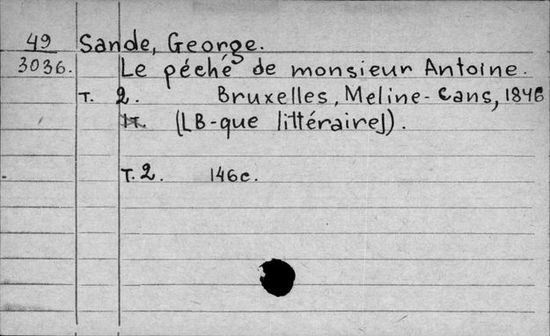 49 Sande, George.
3036. Le péché de monsieur Antoine.
т. 2. Bruxelles, Meline-Cans, 1846
(LB-que littéraire]).
т. 2. 146с.